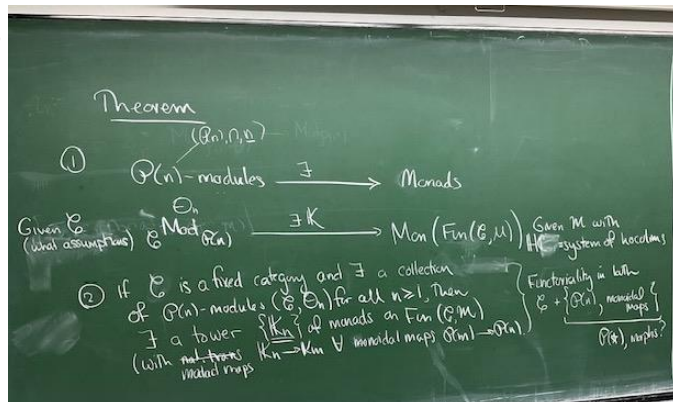 Theorem
(P(n), ∩, n)
① P(n)-modules ∃→ Monads
Given C (what assumptions) C Θn Mod P(n) ∃K→ Mon(Fun(C,M)) Given M with system of hocolims
② If C is a fixed category and ∃ a collection
of P(n)-modules (C, Θn) for all n≥1, Then
∃ a tower {Kn} of monads on Fun(C,M)
(with monad maps Kn→Km ∀ monoidal maps P(m)→P(n))
Functoriality in both
C + {P(n), monoidal maps}
P(*), morphs?